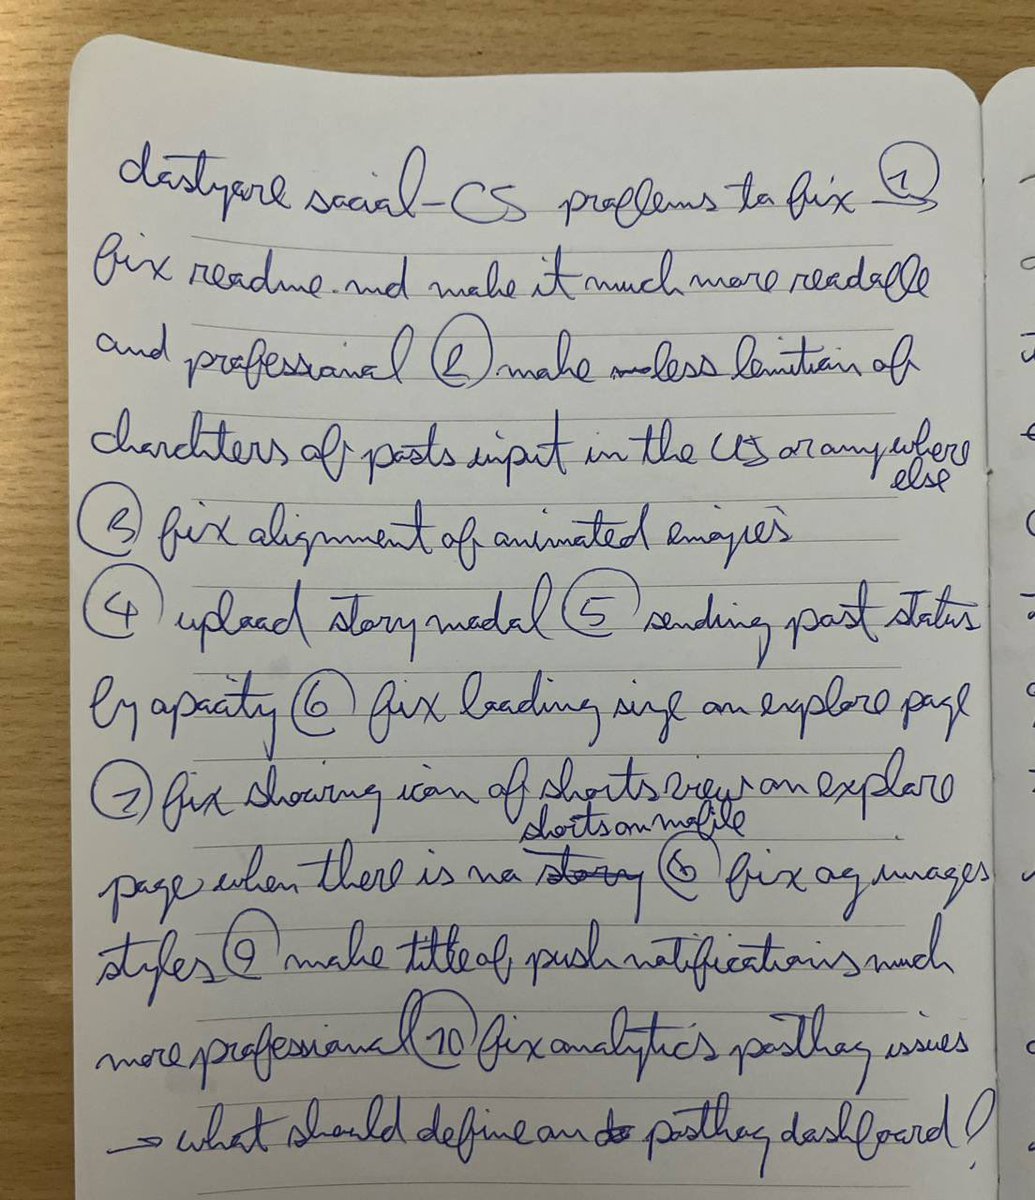 dastyare social-CS problems to fix ①
fix readme.md make it much more readable
and professional ② make less lemitian of
charchters of posts input in the US or anywhere
else
③ fix alignment of animated emojies
④ upload story modal ⑤ sending post status
by opacity ⑥ fix loading singl on explore page
⑦ fix showing icon of shorts view on explore
shorts on mobile
page when there is no story ⑧ fix og images
styles ⑨ make title of push notifications much
more professional ⑩ fix analytics posthog issues
→ what should define on posthog dashboard?